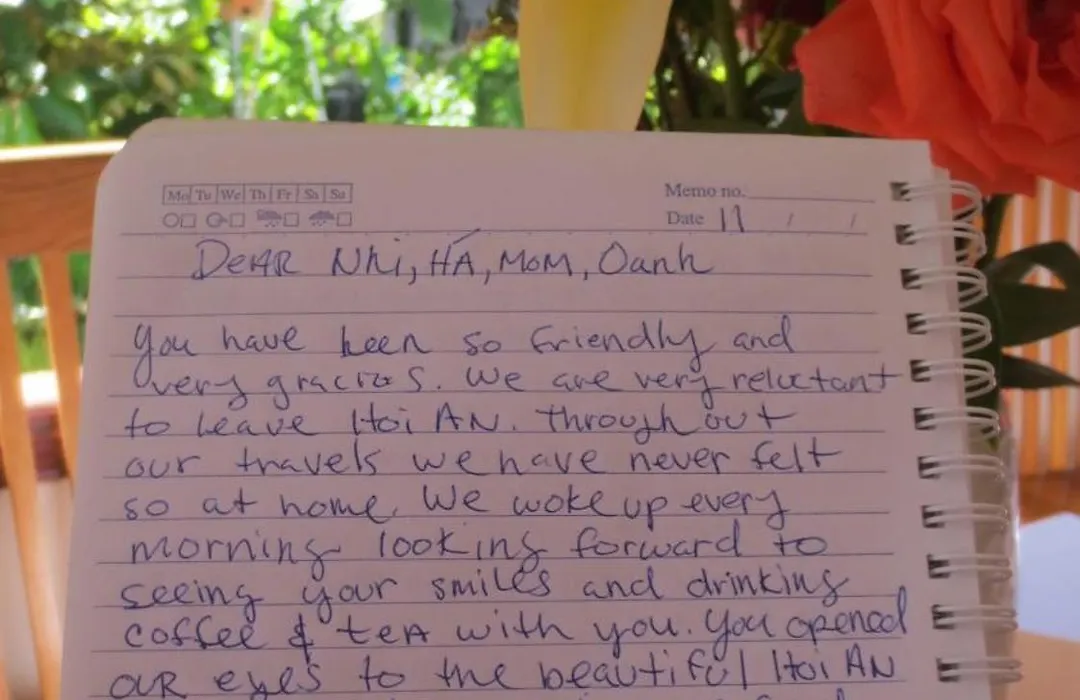 Mo Tu We Th Fr Sa Su
Memo no.
Date 11 / /
DeAR Nhi, HÁ, MOM, Oanh
You have been so friendly and
very gracious. We are very reluctant
to leave Hoi AN. Throughout
our travels we have never felt
so at home. We woke up every
morning looking forward to
seeing your smiles and drinking
coffee & teA with you. You opened
OUR eyes to the beautiful Hoi AN